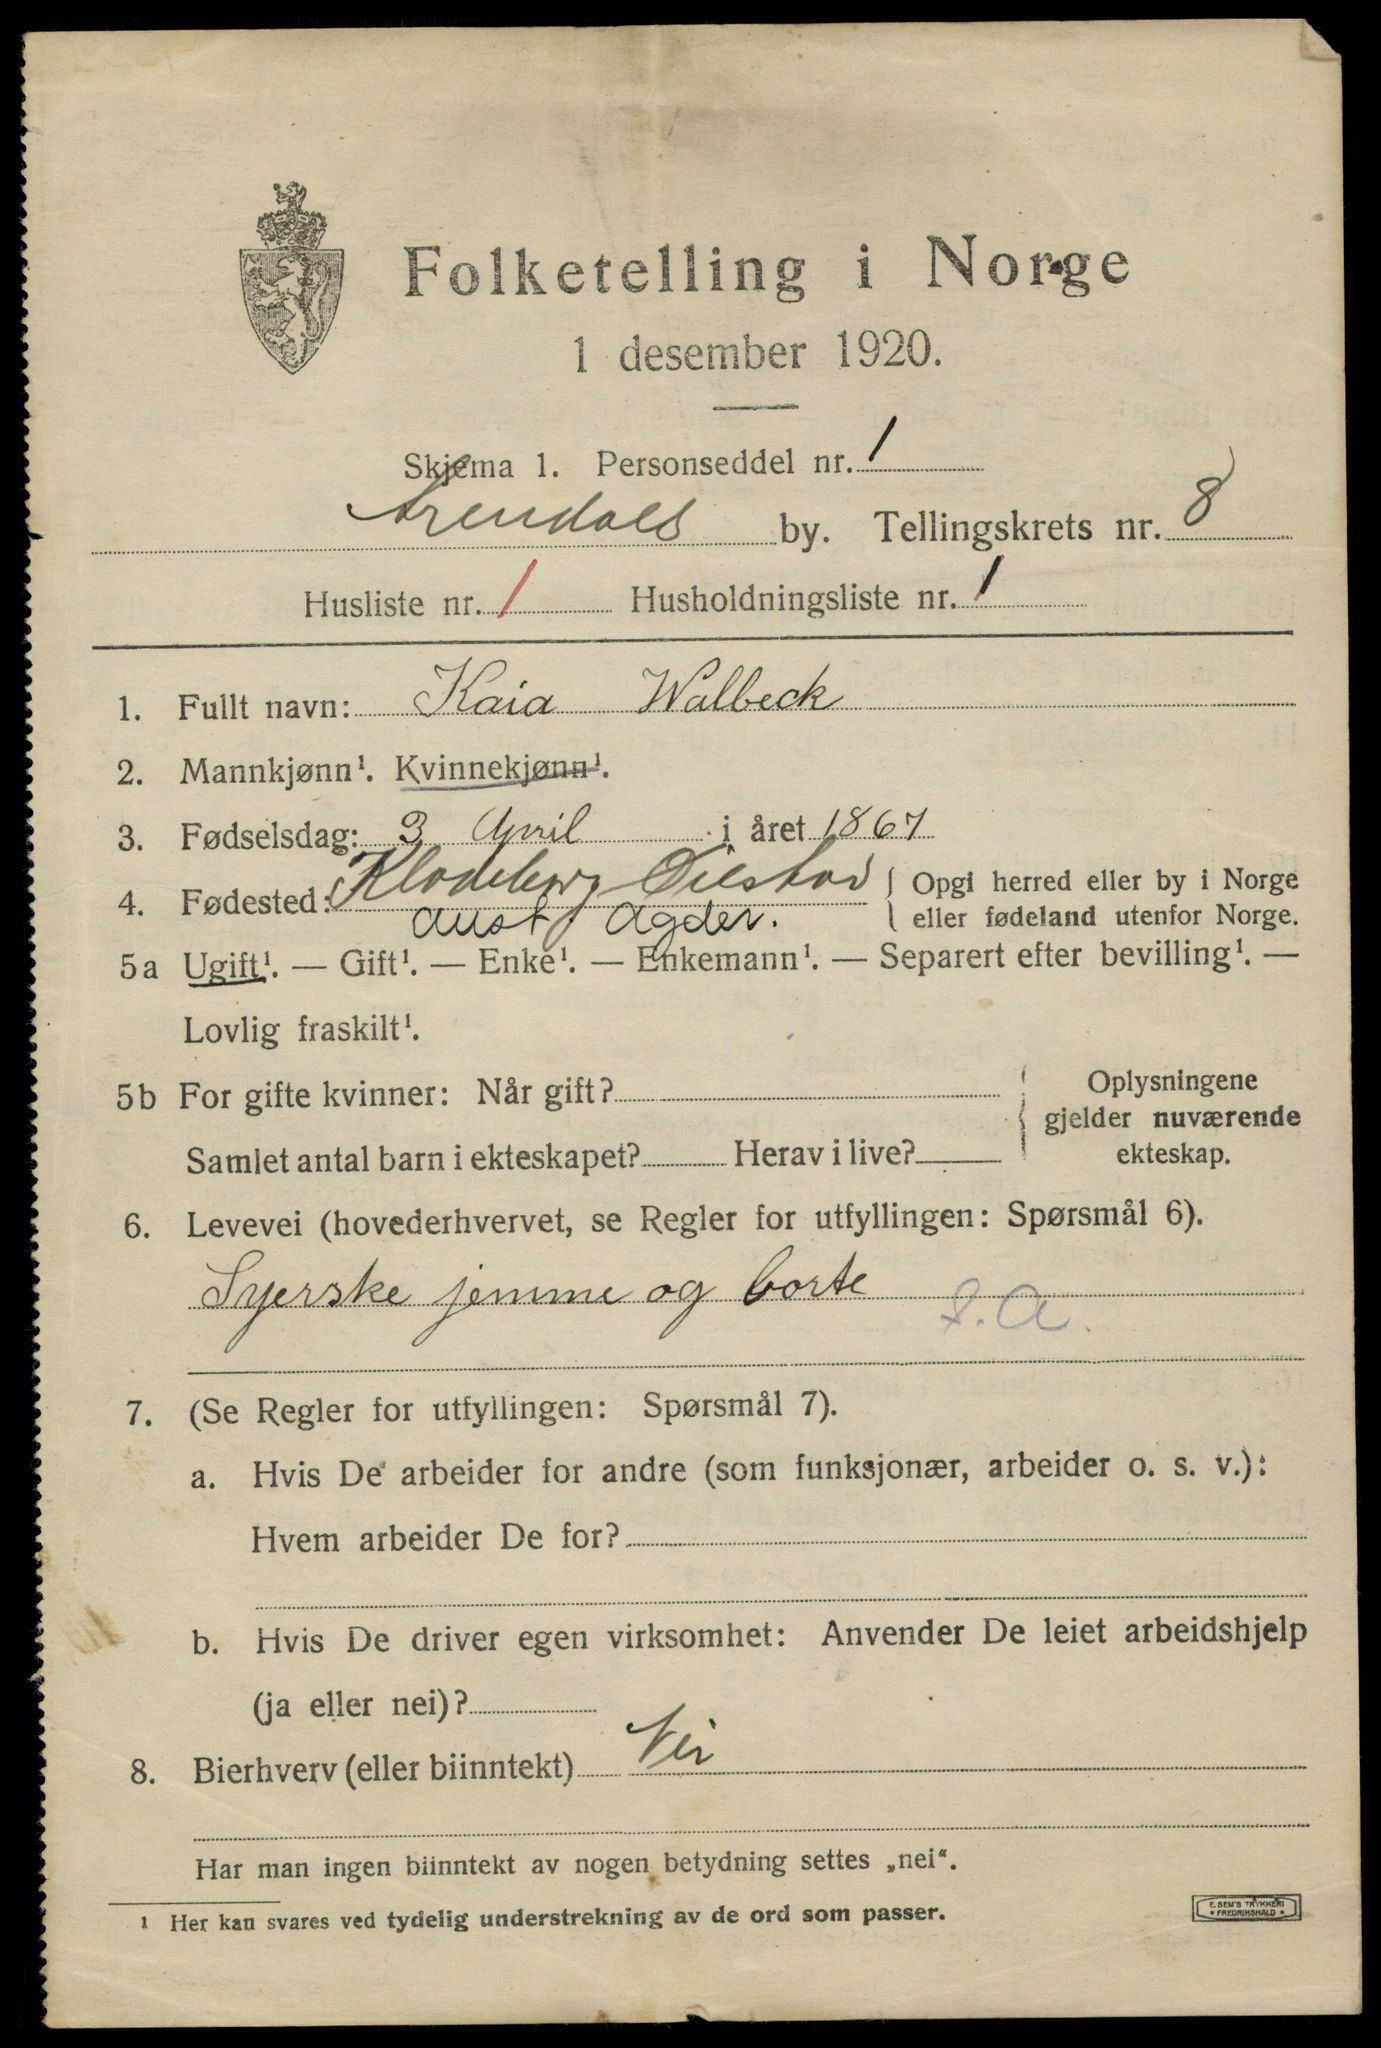 Folketelling i Norge
1 desember 1920.
Skjema 1. Personseddel nr. 1
Arendals by. Tellingskrets nr. 8
Husliste nr. 1 Husholdningsliste nr. 1
1. Fullt navn: Kaia Walbeck
2. Mannkjønn¹. Kvinnekjønn¹.
3. Fødselsdag: 3 April i året 1867
4. Fødested: Øiestad { Opgi herred eller by i Norge
Aust Agder. eller fødeland utenfor Norge.
5a Ugift¹. — Gift¹. — Enke¹. — Enkemann¹. — Separert efter bevilling¹. —
Lovlig fraskilt¹.
5b For gifte kvinner: Når gift? { Oplysningene
gjelder nuværende
Samlet antal barn i ekteskapet? Herav i live? ekteskap.
6. Levevei (hovederhvervet, se Regler for utfyllingen: Spørsmål 6).
Syerske jemme og borte S.A.
7. (Se Regler for utfyllingen: Spørsmål 7).
a. Hvis De arbeider for andre (som funksjonær, arbeider o. s. v.):
Hvem arbeider De for?
b. Hvis De driver egen virksomhet: Anvender De leiet arbeidshjelp
(ja eller nei)?
8. Bierhverv (eller biinntekt) Nei
Har man ingen biinntekt av nogen betydning settes „nei“.
¹ Her kan svares ved tydelig understrekning av de ord som passer.
E. SEM'S TRYKKERI
• FREDRIKSHALD •